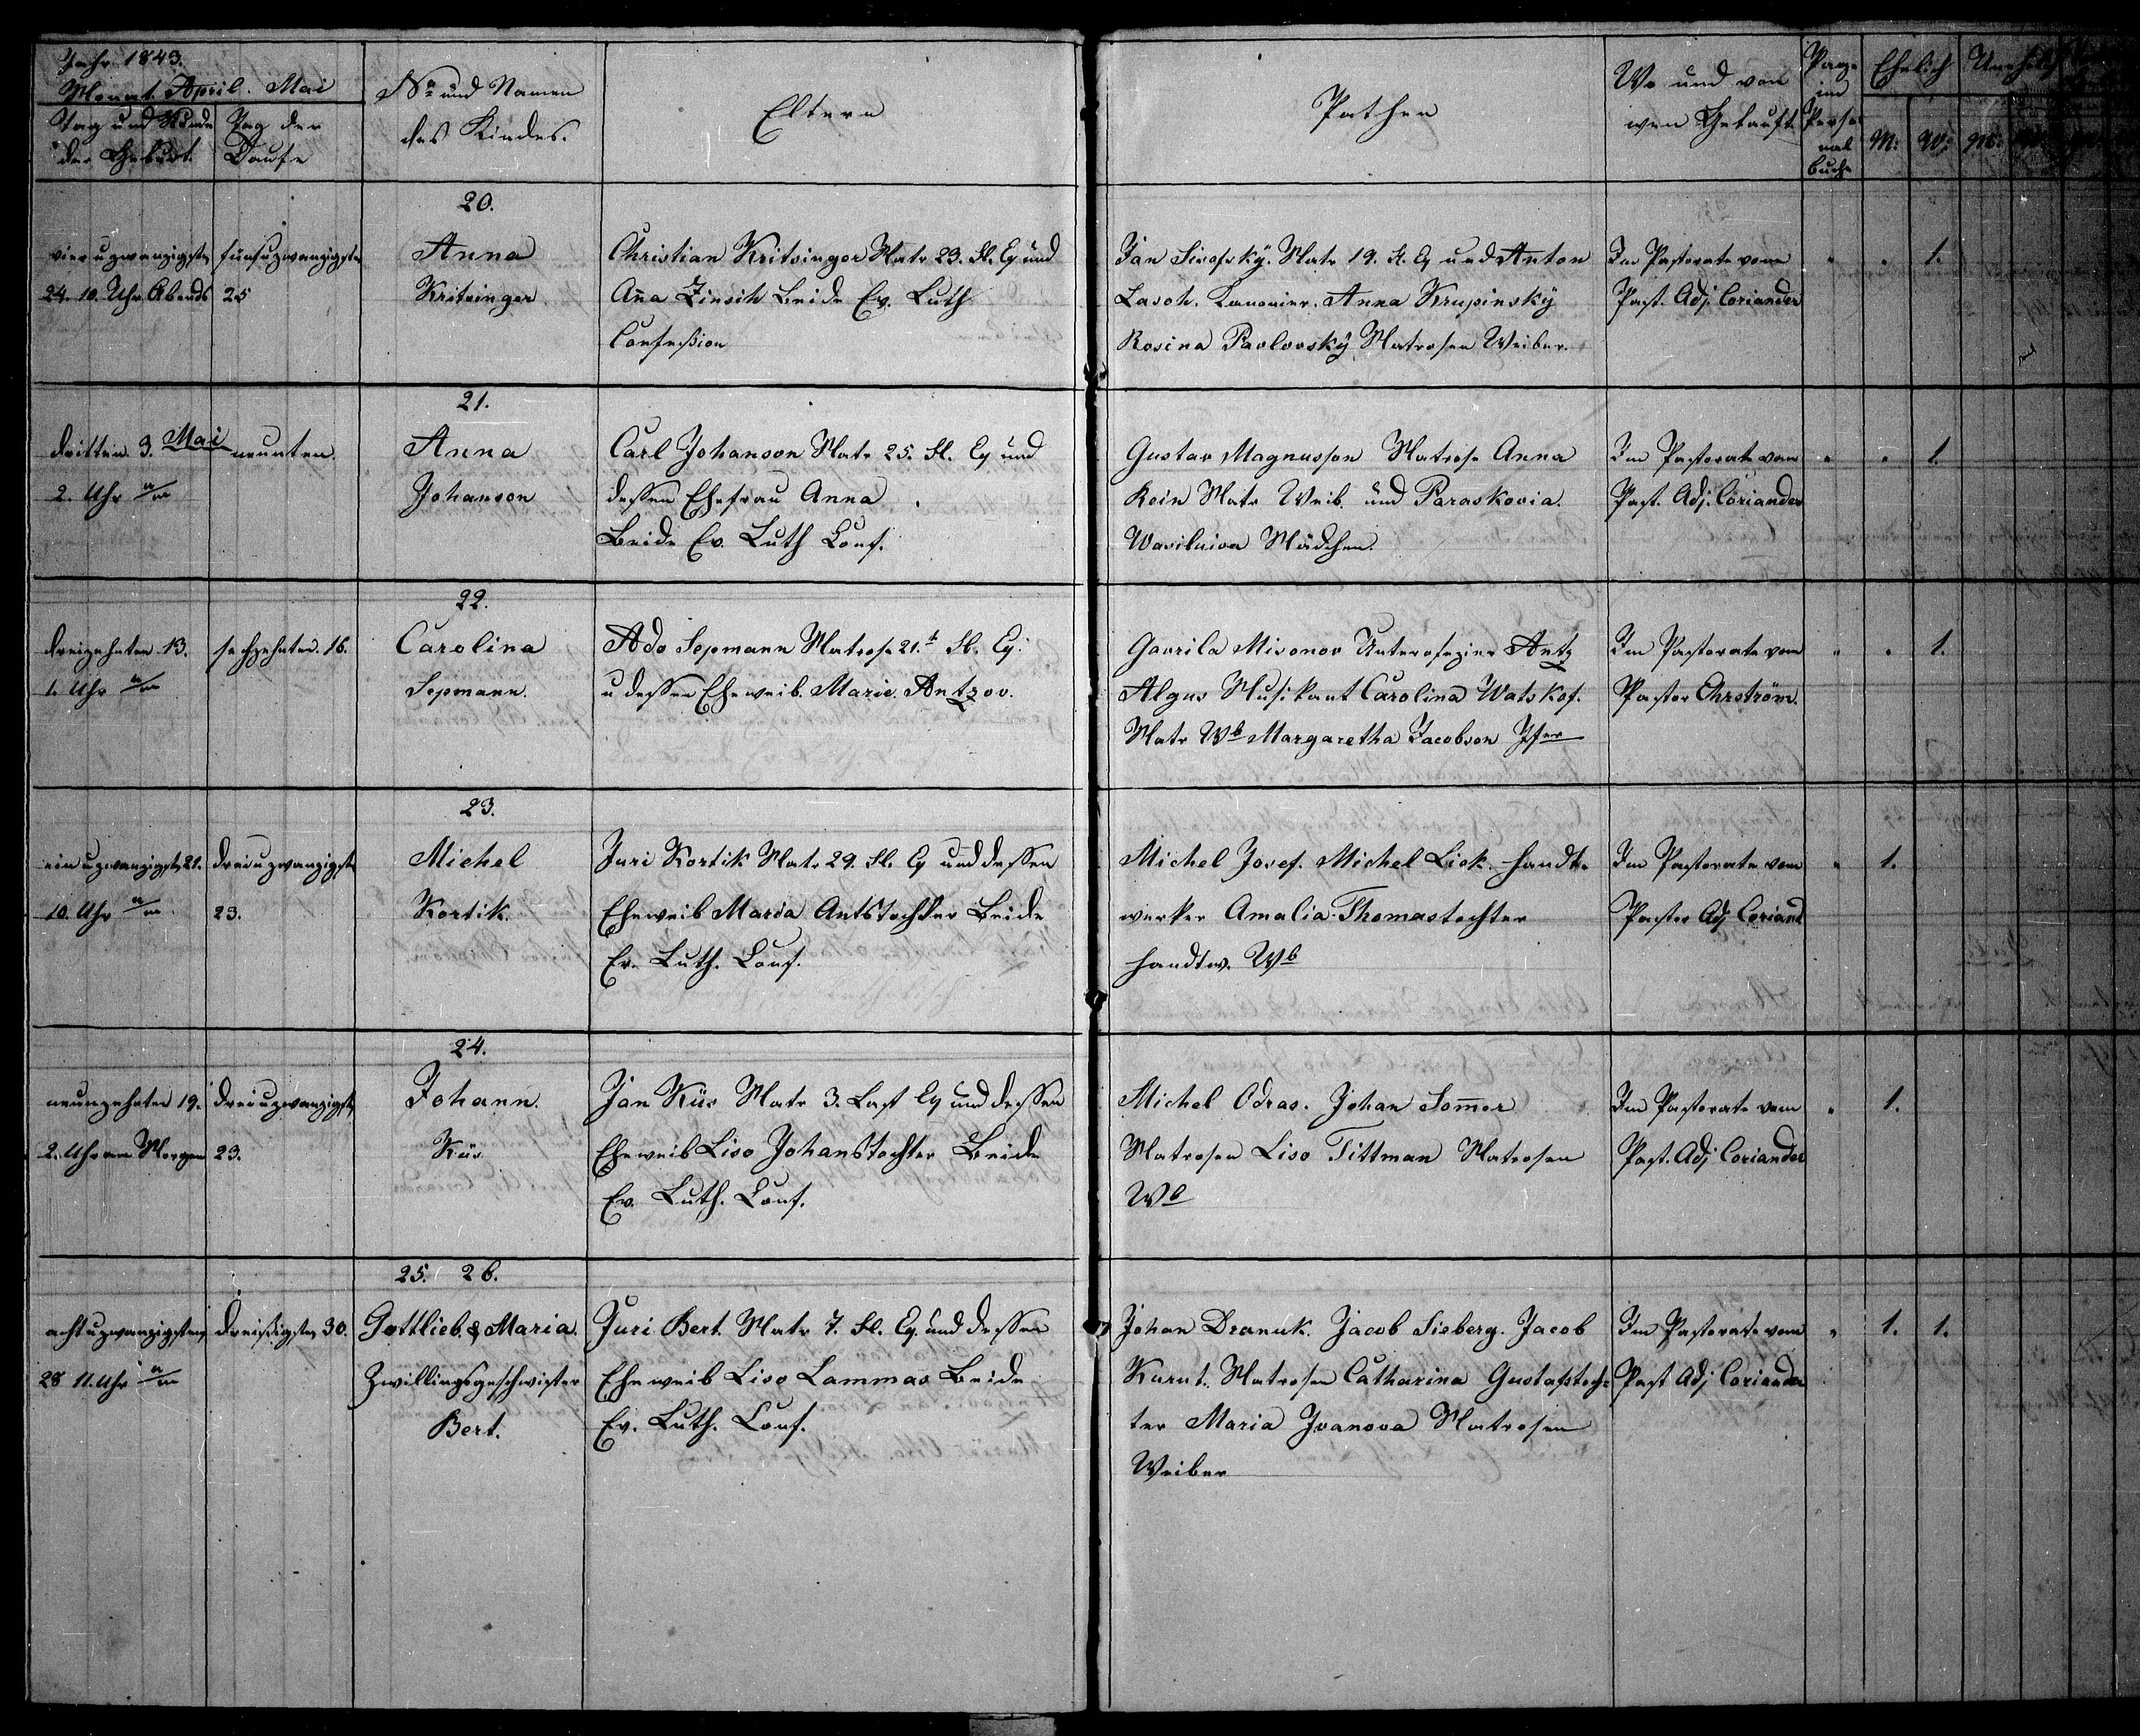 Jahr 1843.
Monat. April. Mai
Tag und Stunde der Geburt.
Tag der Taufe
No und Namen
des Kindes.
Eltern
Pathen
Wo und von
wem Getauft.
Page im Personal buche
Ehelich
M: W:
20.
vier u zwanzigsten
24. 10. Uhr Abends
fünf u zwanzigsten
25
Anna
Kritsinger
Christian Kritsinger Matr. 23. Fl. Eq und
Anna Zinsih Beide Ev. Luth
Confession
Jan Matr 19. Fl. Eq und Anton
Lasch. Kanonier. Anna Krupinsky
Rosina Pavlovsky Matrosen Weiber.
Im Pastorate vom
Past. Adj. Coriander
1.
21.
dritten. 3. Mai
2. Uhr n/m
neunten.
Anna
Johanson
Carl Johanson Matr 25. Fl. Eq und
dessen Ehefrau Anna
Beide Ev. Luth Conf.
Gustav Magnusson Matrose Anna
Kein Matr Weib. und Paraskovia.
Mädchen.
Im Pastorate vom
Past. Adj. Coriander
1.
22.
dreizehnten 13.
1. Uhr n/m
sechzehnten. 16.
Carolina
Sepmann.
Ado Sepmann Matrose 21.t Fl. Eq:
u dessen Eheweib. Marie. Antzov.
Gavrila Mironov Unterofizier Antz
Algus Musikant Carolina Watskof.
Matr Wb Margaretha Jacobson Jfer
Im Pastorate vom
Pastor Ohrström.
1.
23.
ein u zwanzigst. 21.
10. Uhr n/m.
drei u zwanzigst
23.
Michel
Kortik.
Juri Kortik Matr 29. Fl. Eq und dessen
Eheweib Marda Antstochter Beide
Ev. Luth. Conf.
Michel Josef. Michel Liek. Handt-
werker Amalia Thomastochter
Handtw. Wb
Im Pastorate vom
Pastor Adj Coriand
1.
24.
neunzehnten 19.
2. Uhr am Morgen
drei u zwanzigst
23.
Johann.
Küs
Jan Küs Matr 3. Last Eq und dessen
Eheweib Liso Johanstochter Beide
Ev. Luth. Conf.
Michel Odras. Johan Sommer
Matrosen Liso Tittman Matrosen
Wb
Im Pastorate vom
Past. Adj Coriander
1.
25. 26.
acht u zwanzigsten
28 11. Uhr n/m
dreißigsten 30.
Gottlieb. & Maria.
Zwillingsgeschwister
Bert.
Juri Bert. Matr 7. Fl. Eq. und dessen
Eheweib Liso Lammas Beide
Ev. Luth. Conf.
Johan Dranuk. Jacob Sieberg. Jacob
Kurut. Matrosen Catharina Gustafstoch-
ter Maria Jvanova Matrosen
Weiber
Im Pastorate vom
Past Adj Coriander
1. 1.